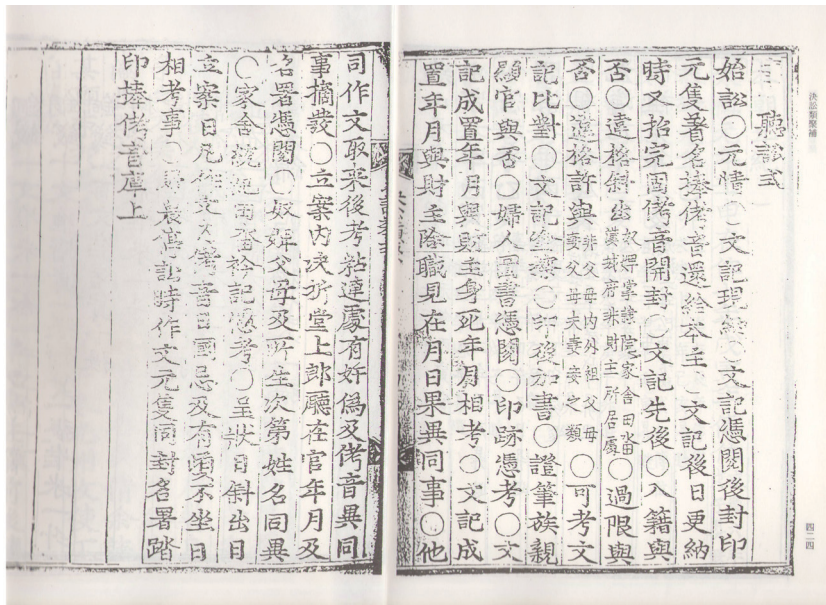 決訟類聚補
四二四
聽訟式
始訟○元情○文記現納○文記憑閱後封印
元隻着名捧侤音還給本主○文記後日更納
時又招完固侤音開封○文記先後○入籍與
否○違格斜出奴婢掌隷院家舍田畓
漢城府米財主所居處○過限與
否○違格許與非父母內外祖父母
妻父母夫妻妾之類○可考文
記比對○文記塗擦○印後加書○證筆族親
顯官與否○婦人圖書憑閱○印跡憑考○文
記成置年月與財主身死年月相考○文記成
置年月與財主除職見在月日果異同事○他
司作文取來後考粘連處有奸僞及侤音異同
事摘發○立案內決折堂上郎廳在官年月及
名署憑閱○奴婢父母及所生次第姓名同異
○家舍統記田畓衿記憑考○呈狀日斜出日
立案日凡作文及侤音日國忌及有頉不坐日
相考事○訟時作文元隻同封名署踏
印捧侤音庫上